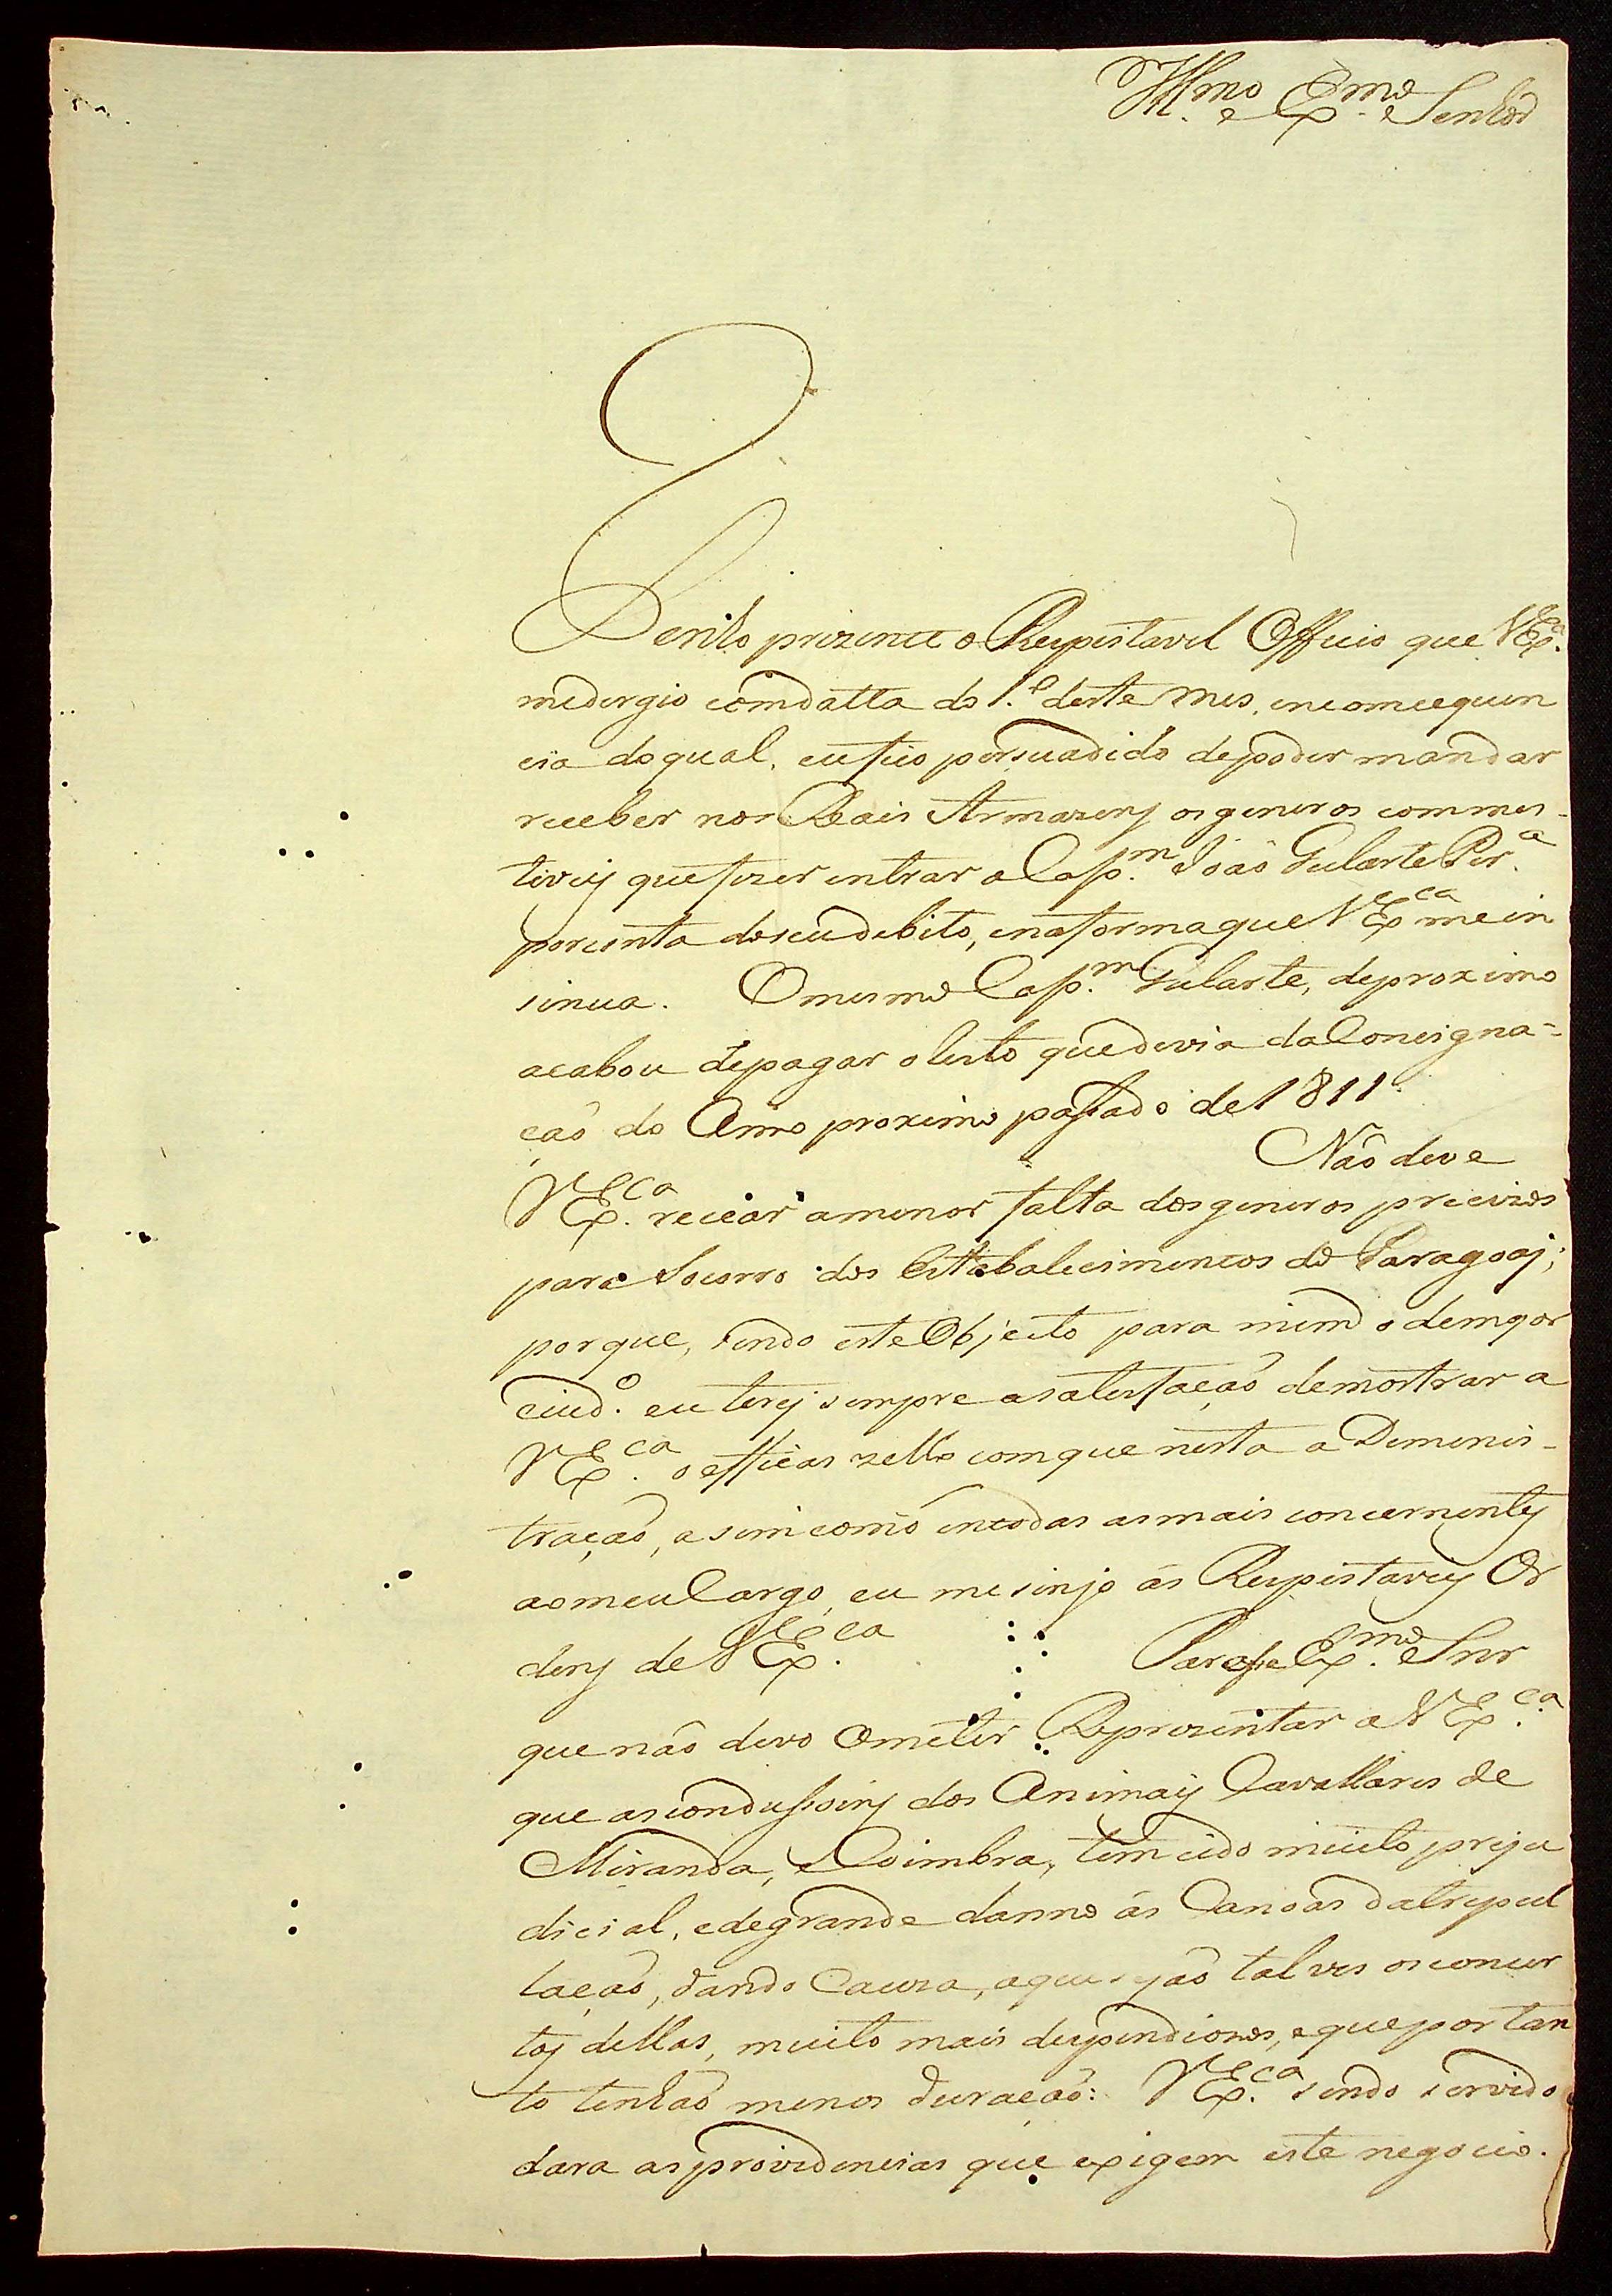 Illmo. e Exmo. Senhor
Tenho prizente o Respeitavel Officio que VExa.
medergio comdatta do 1.º deste mes, emconcequen
cia doqual, eufico persuadido depoder mandar
receber nos Reais Armazens osgeneros commes-
tiveis quefizer entrar o Capm. João Gularte Pera.
porconta doseudebito, enaformaque VExca. mein
sinua. Omesmo Capm. Gularte, deproximo
acabou depagar oresto quedevia daConsigna-
ção do Anno proximo passado de 1811.
Não deve
VExca. recear amenor falta dosgeneros precizos
para Socorro dos Estabalecimentos do Paragoai;
porque, sendo esteObjecto para mim o demayor
cuido. eu terei sempre asatisfação demostrar a
VExca. o efficas zello comque nesta aDeminis-
tração, asimcomo entodas asmais concernentes
aomeuCargo, eu mesinjo ás Respeitaveis Or
dens de VExca. Exmo. Snr
que não devo Ometir Reprezentar a VExca.
que ascondussoins dos Animais Cavallares de
Miranda, e Coimbra, tem cido muito preju
dicial, edegrande danno ás Canoas datripul
lação, dando Cauza, aque sejão talves osconcer
tos dellas, muito mais despendiozos, equeportan
to tenhão menos duração: VExca. sendo servido
dara asprovidencias que exigem este negocio.